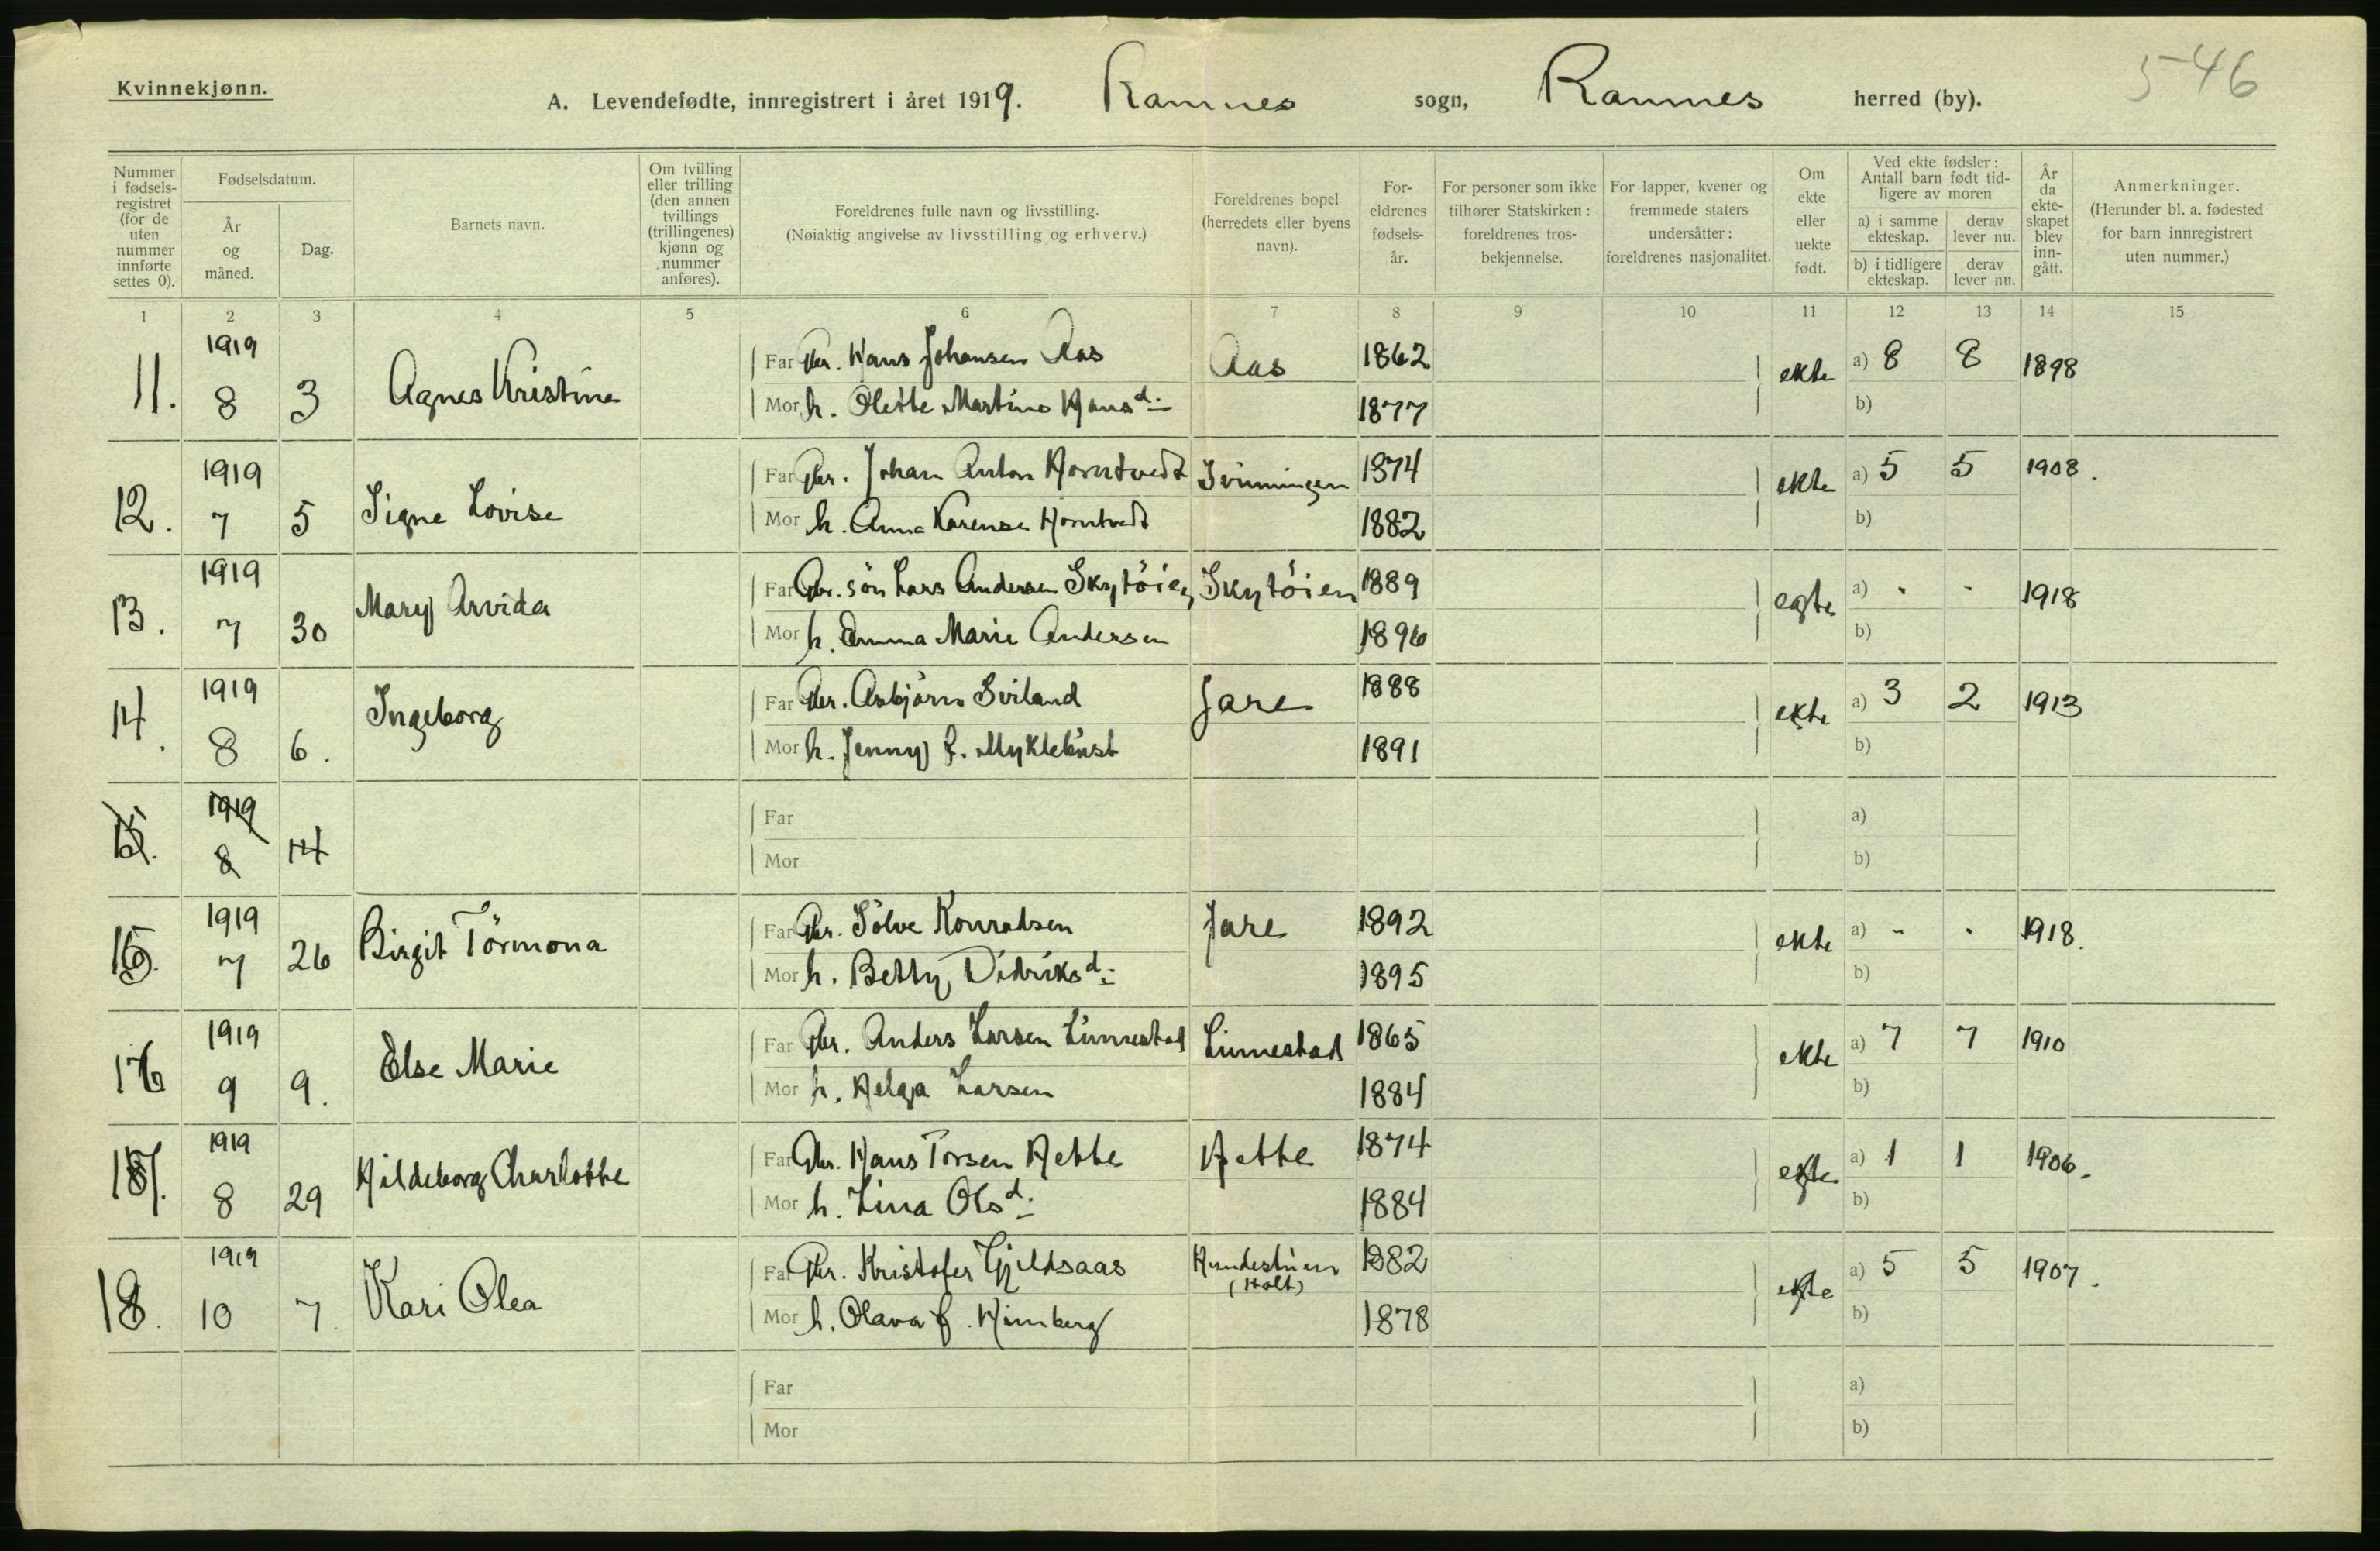 Kvinnekjønn.
A. Levendefødte, innregistrert i året 1919. Ramnes sogn, Ramnes herred (by). 546
Nummer i fødsels-registret (for de uten nummer innførte settes 0).
Fødselsdatum.
År og måned.
Dag.
Barnets navn.
Om tvilling eller trilling (den annen tvillings (trillingenes) kjønn og nummer anføres).
Foreldrenes fulle navn og livsstilling.
(Nøiaktig angivelse av livsstilling og erhverv.)
Foreldrenes bopel (herredets eller byens navn).
For-eldrenes fødsels-år.
For personer som ikke tilhører Statskirken: foreldrenes tros-bekjennelse.
For lapper, kvener og fremmede staters undersåtter: foreldrenes nasjonalitet.
Om ekte eller uekte født.
Ved ekte fødsler: Antall barn født tid-ligere av moren
a) i samme ekteskap.
derav lever nu.
b) i tidligere ekteskap.
derav lever nu.
År da ekte-skapet blev inn-gått.
Anmerkninger.
(Herunder bl. a. fødested for barn innregistrert uten nummer.)
1 2 3 4 5 6 7 8 9 10 11 12 13 14 15
11. 1919 8 3 Agnes Kristine Far Gbr. Hans Johansen Aas Aas 1862 ekte a) 8 8 1898
Mor h. Olette Martine Hansd: 1877 b)
12. 1919 7 5 Signe Lovise Far Gbr. Johan Anton Horntvedt Svinningen 1874 ekte a) 5 5 1908.
Mor h. Anna Karense Horntvedt 1882 b)
13. 1919 7 30 Mary Arvida Far Gbr. sön Lars Andersen Skytöien Skytöien 1889 egte a) - - 1918
Mor h. Emma Marie Andersen 1896 b)
14. 1919 8 6. Ingeborg Far Gbr. Asbjörn Sviland Jare 1888 ekte a) 3 2 1913
Mor h. Jenny f. Myklebust 1891 b)
15. 1919 8 14 Far a)
Mor b)
15. 1919 7 26 Birgit Törmona Far Gbr. Sölve Konradsen Jare 1892 ekte a) - - 1918.
Mor h. Betty Didriksd: 1895 b)
16 1919 9 9. Else Marie Far Gbr. Anders Larsen Linnestad Linnestad 1865 ekte a) 7 7 1910
Mor h. Helga Larsen 1884 b)
17. 1919 8 29 Hildeborg Charlotte Far Gbr. Hans Torsen Hette Hette 1874 ekte a) 1 1 1906.
Mor h. Lina Olsd: 1884 b)
18. 1919 10 7. Kari Olea Far Gbr. Kristofer Gjeldsaas (Holt) 1882 ekte a) 5 5 1907.
Mor h. Olava f. Himberg 1878 b)
Far a)
Mor b)